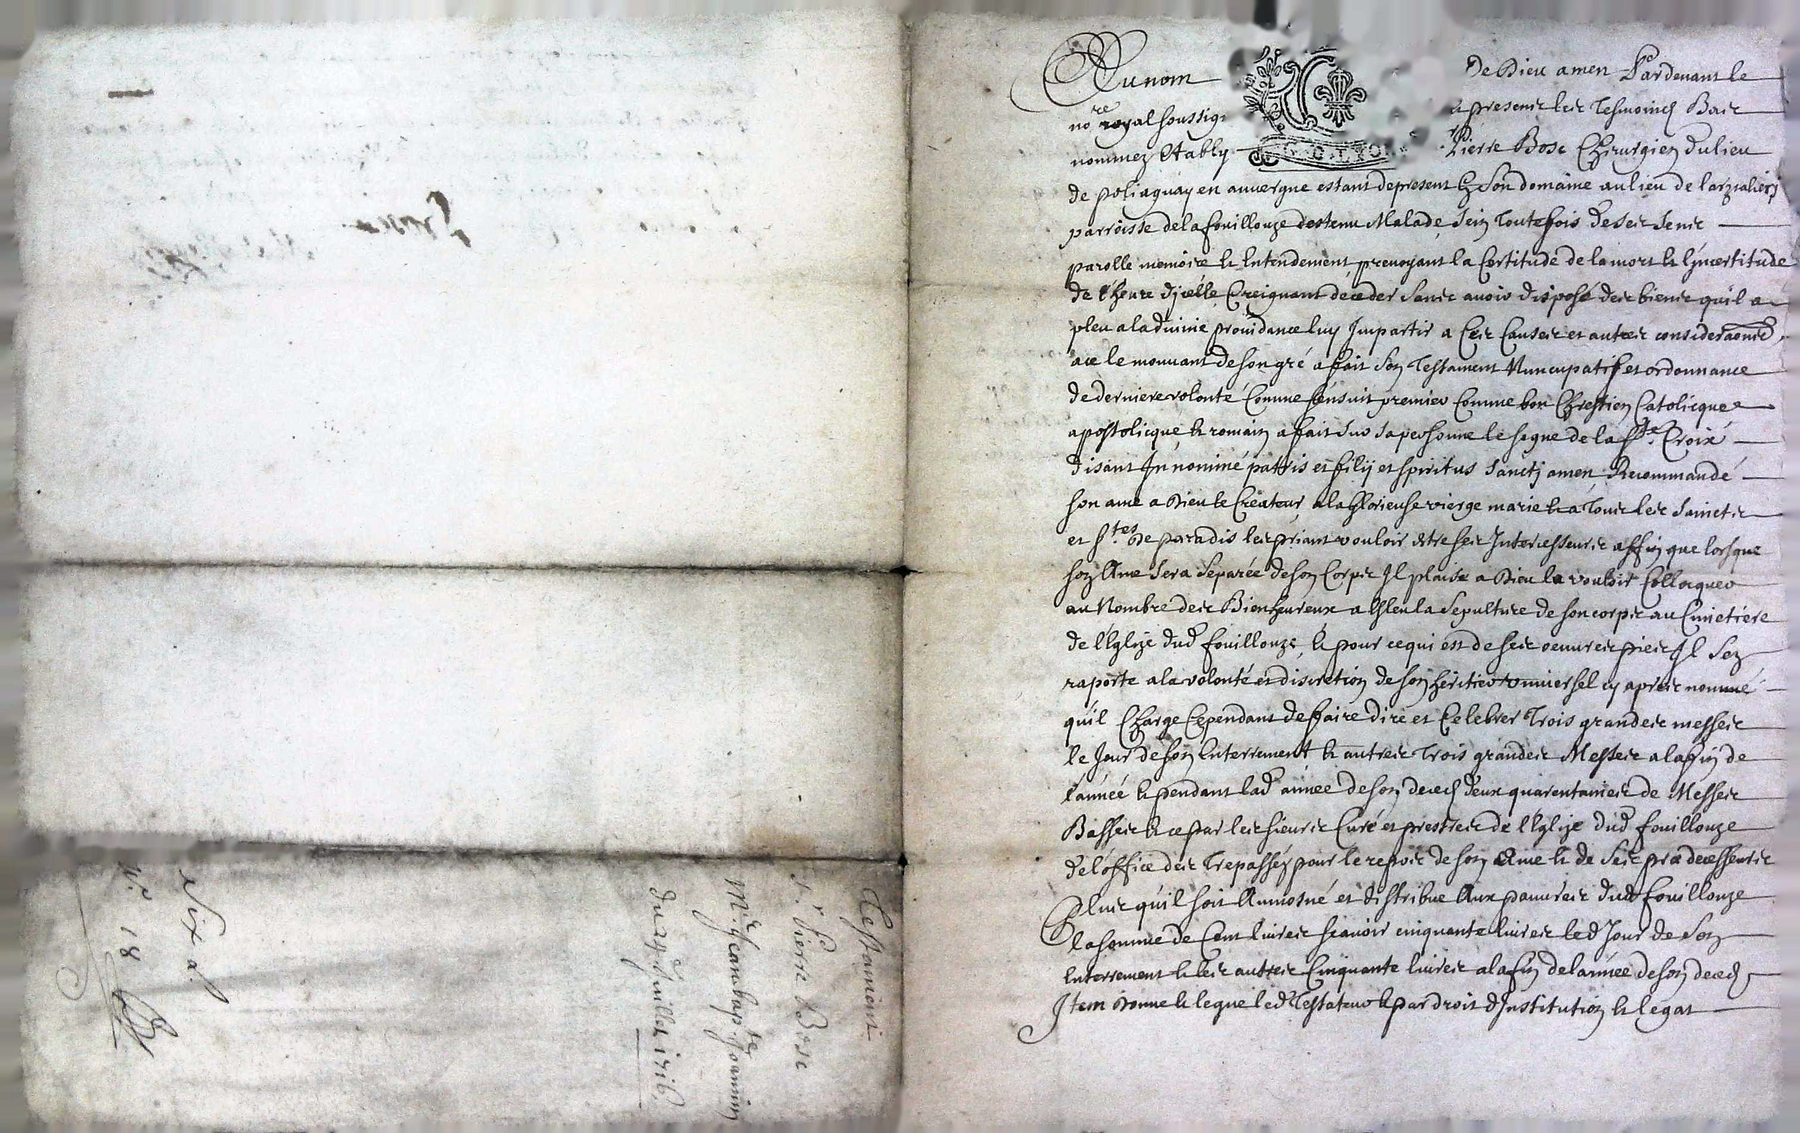 Testament
Sr Pierre Bosc
Mre Jean bapte Joannin
du 24e Juillet 1716
six d.
No 18
Au nom de Dieu amen Pardevant le
nore royal soussig presents les tesmoins Bas
nommez Estably Pierre Bosc Chirurgien du lieu
de poliaguay en auvergne estant de present En son domaine au lieu de
parroisse de la fouillouze destenu Malade sein toutefois de ses sens
parolle memoire et entendement prevoyant la Certitude de la mort et l'incertitude
de l'heure d'icelle Creignant deceder sans avoir disposé des biens quil a
pleu a la divine providance luy Impartir a Ces Causes et autres consideraons
a ce le mouvant de son gré a fait son Testament Nuncupatif et ordonnance
de derniere volonté Comme s'ensuit premier Comme bon Chrestien Catolicque
apostolicque et romain a fait sur sa personne le signe de la Ste Croix
disant In nominé patris et filij et spiritus sanctj amen Recommandé
son ame a Dieu le Createur a la Glorieuse vierge marie et a Tous les Saincts
et Stes de paradis les priant vouloir estre ses Intercesseurs affin que lorsque
son Ame sera separée de son Corps Il plaise a Dieu la vouloir Collocquer
au Nombre des Bienheureux a Esleu la sepulture de son corps au Cimetiére
de l'Eglize dud fouillouze, et pour ce qui est de ses oeuvres pies Il sen
raporte a la volonté et discretion de son héritier universel cy apres nommé
quil Charge Cependant de faire dire et Celebrer Trois grandes messes
le Jour de son Enterrement et autres Trois grandes Messes a la fin de
l'année et pendant lad année de son deces deux quarentaines de Messes
Basses et ce par les sieurs Curé et prestres de l'Eglize dud fouillouze
de l'office des Trepassés pour le repos de son Ame et de ses predecesseurs
Plus quil soit Aumosné et distribue Aux pauvres dud fouillouze
la somme de Cent livres scavoir cinquante livres led Jour de son
Enterrement et les autres Cinquante livres a la fin de l'année de son deces
Item donne et legue led Testateur et par droit d'Institution et legat